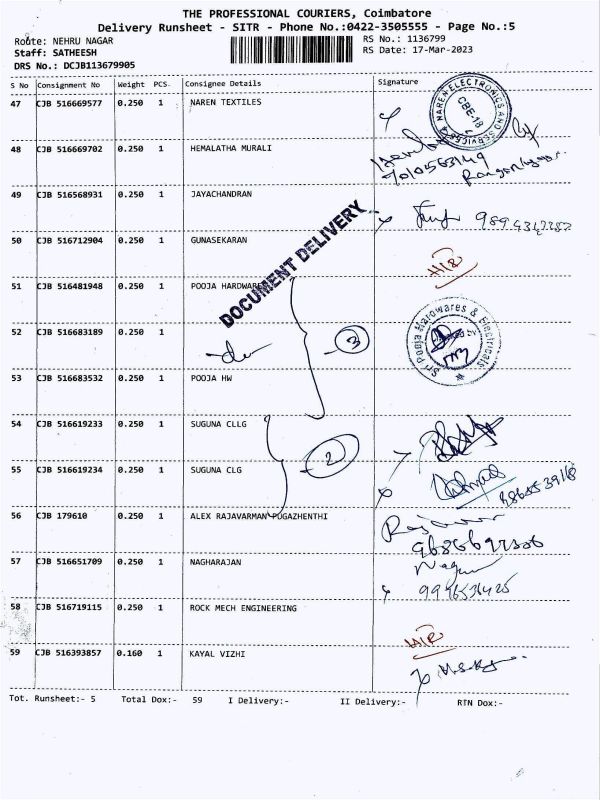 THE PROFESSIONAL COURIERS, Coimbatore
Delivery Runsheet - SITR - Phone No.:0422-3505555 - Page No.:5
Route: NEHRU NAGAR
RS No.: 1136799
Staff: SATHEESH
RS Date: 17-Mar-2023
DRS No.: DCJB113679905
S No Consignment No Weight PCS Consignee Details Signature
47 CJB 516669577 0.250 1 NAREN TEXTILES
NAREN ELECTRONICS AND SERVICES
CBE-18
48 CJB 516669702 0.250 1 HEMALATHA MURALI
49 CJB 516568931 0.250 1 JAYACHANDRAN
50 CJB 516712904 0.250 1 GUNASEKARAN
DOCUMENT DELIVERY
51 CJB 516481948 0.250 1 POOJA HARDWARE
52 CJB 516683189 0.250 1
3
Sri Pooja Hardwares & Electricals
53 CJB 516683532 0.250 1 POOJA HW
54 CJB 516619233 0.250 1 SUGUNA CLLG
2
55 CJB 516619234 0.250 1 SUGUNA CLG
56 CJB 179610 0.250 1 ALEX RAJAVARMAN PUGAZHENTHI
57 CJB 516651709 0.250 1 NAGHARAJAN
58 CJB 516719115 0.250 1 ROCK MECH ENGINEERING
59 CJB 516393857 0.160 1 KAYAL VIZHI
Tot. Runsheet:- 5 Total Dox:- 59 I Delivery:- II Delivery:- RTN Dox:-